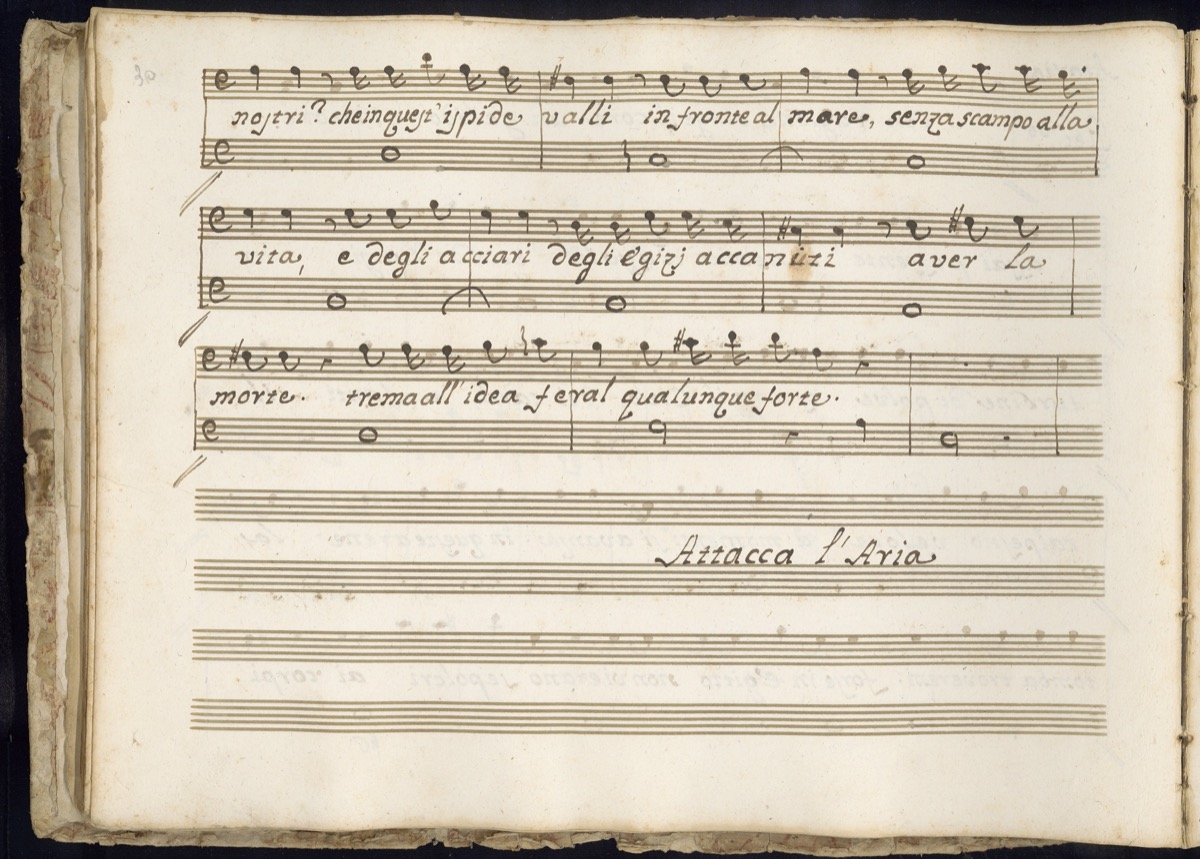 30
nostri? che in quest' ispide valli in fronte al mare, senza scampo alla
vita, e degli acciari degli Egizj accaniti aver la
morte. trema all' idea feral qualunque forte.
Attacca l'Aria